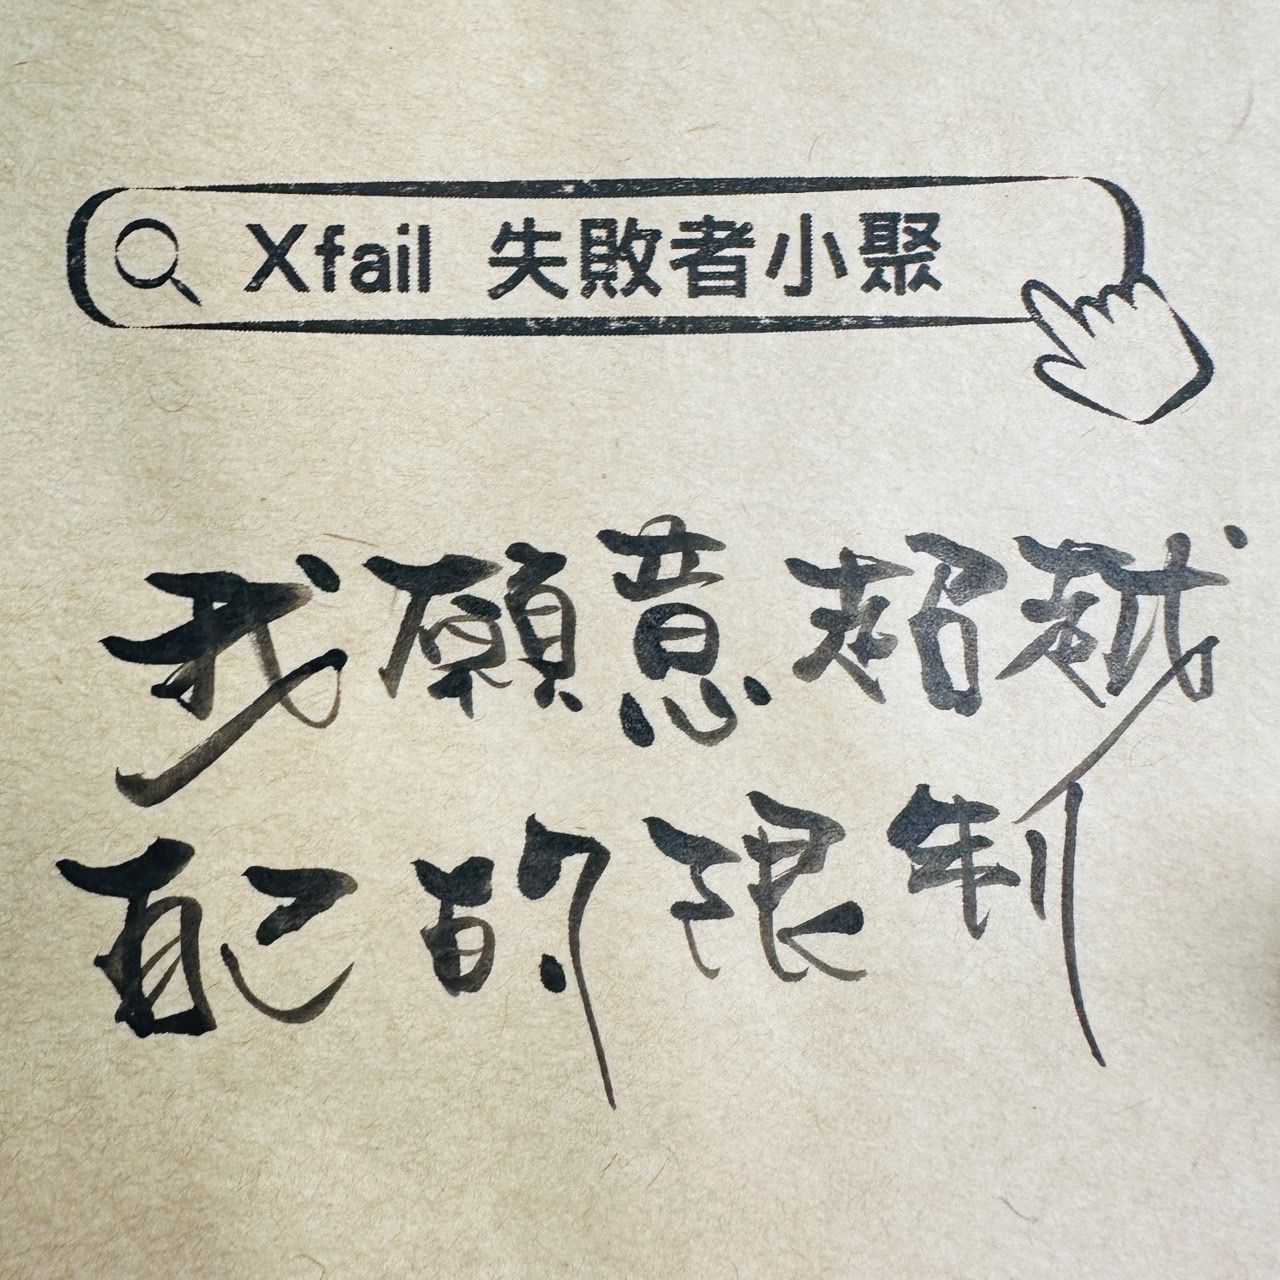 Xfail 失敗者小聚
我願意超越
自己的限制